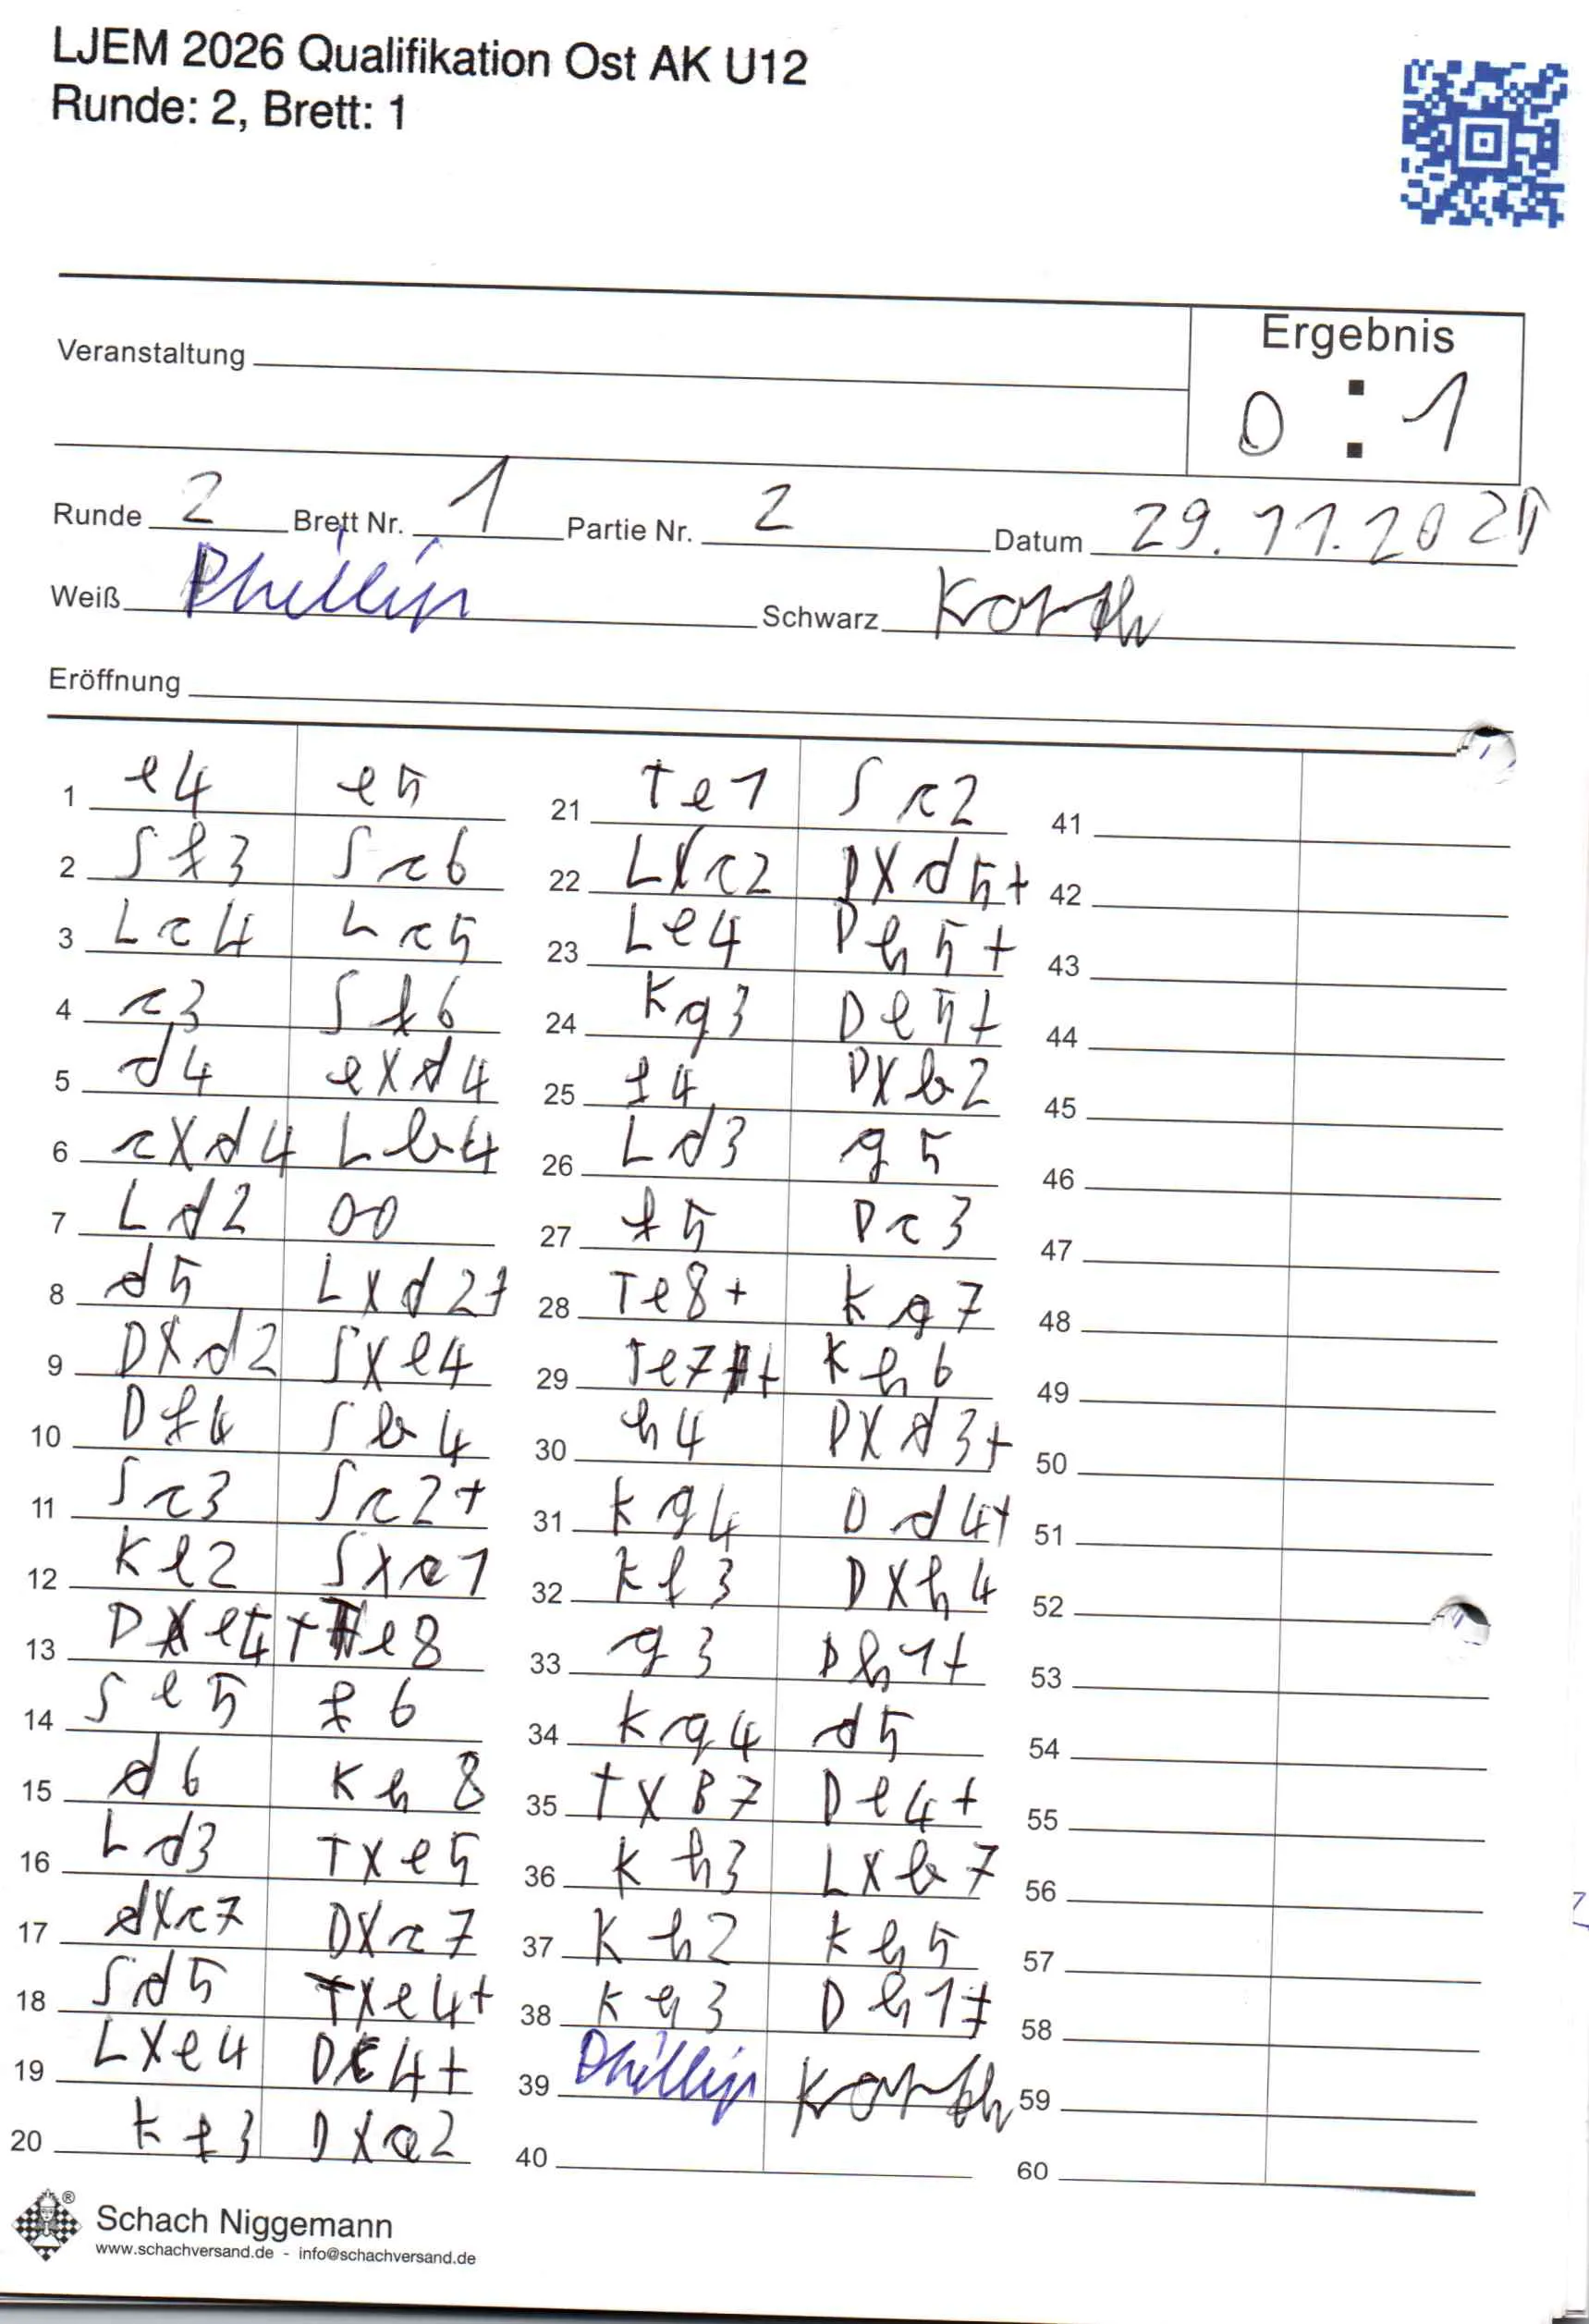 LJEM 2026 Qualifikation Ost AK U12
Runde: 2, Brett: 1
Veranstaltung
Ergebnis
0 : 1
Runde 2 Brett Nr. 1 Partie Nr. 2 Datum 29.11.2025
Weiß Phillip Schwarz Korth
Eröffnung
1 e4 e5
2 Sf3 Sc6
3 Lc4 Lc5
4 c3 Sf6
5 d4 exd4
6 cxd4 Lb4
7 Ld2 00
8 d5 Lxd2+
9 Dxd2 Sxe4
10 Df4 Sb4
11 Sc3 Sc2+
12 Ke2 Sxa1
13 Dxe4+ Te8
14 Se5 f6
15 d6 Kh8
16 Ld3 Txe5
17 dxc7 Dxc7
18 Sd5 Txe4+
19 Lxe4 Dc4+
20 Kf3 Dxa2
21 Te1 Sc2
22 Lxc2 Dxd5+
23 Le4 Dh5+
24 Kg3 De5+
25 f4 Dxb2
26 Ld3 g5
27 f5 Dc3
28 Te8+ Kg7
29 Te7+ Kh6
30 h4 Dxd3+
31 Kg4 Dd4+
32 Kf3 Dxh4
33 g3 Dh1+
34 Kg4 d5
35 TxB7 De4+
36 Kh3 Lxb7
37 Kh2 Kh5
38 Kh3 Dh1‡
39 Phillip Korth
40
41
42
43
44
45
46
47
48
49
50
51
52
53
54
55
56
57
58
59
60
®
Schach Niggemann
www.schachversand.de - info@schachversand.de